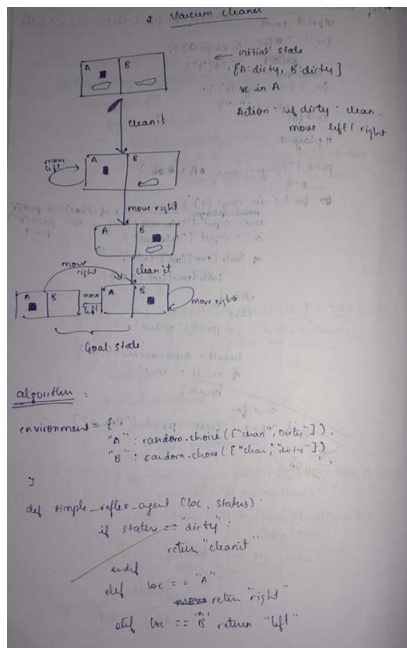 2. Vacuum cleaner
← initial state
A B
[A: dirty, B: dirty]
vc in A
Action: if dirty: clean.
move left/ right
cleanit
move left
A B
move right
A B
clean it
move right
A B
move left
A B
move right
Goal state
algorithm :
environment = {
"A" : random.choice (["clean", "Dirty"]).
"B" : random.choice (["clean", "dirty"])
}
def simple_reflex_agent (loc, status):
if status == "dirty":
return "cleanit"
endif
elif loc == "A"
return "right"
elif loc == "B" return "left"